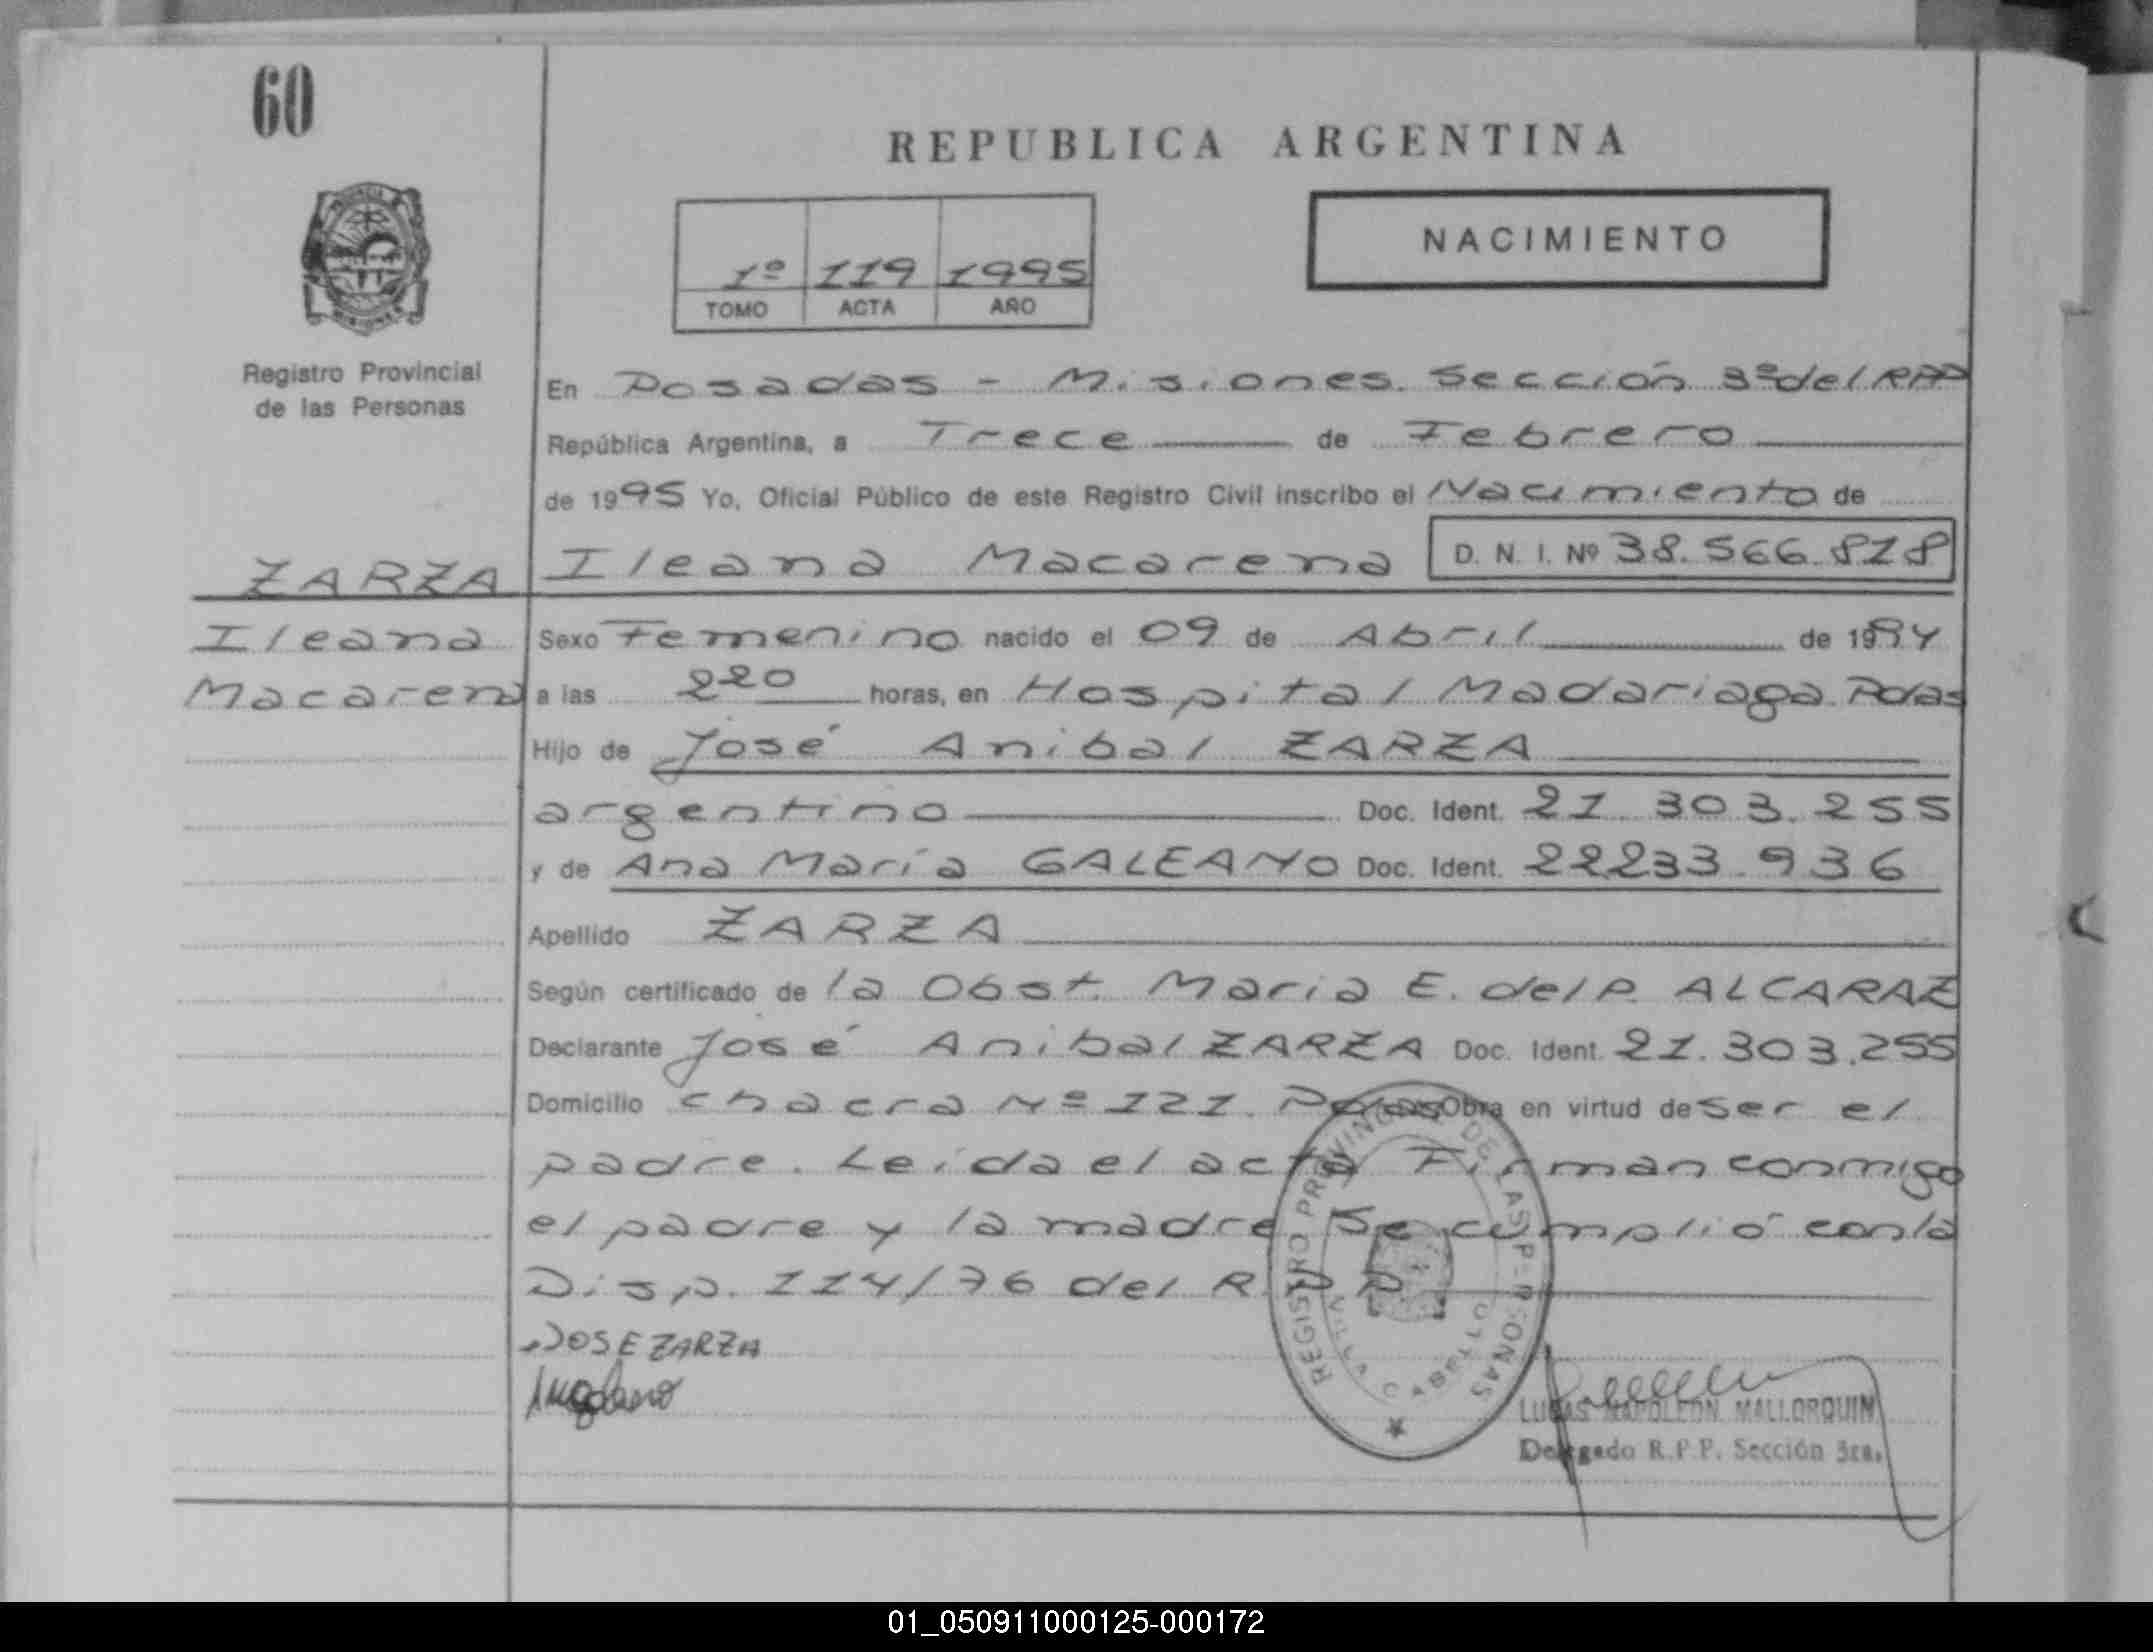 60
REPUBLICA ARGENTINA
NACIMIENTO
1º 119 1995
TOMO ACTA AÑO
Registro Provincial
de las Personas
En Posadas - Misiones. Sección 3º del RPP
República Argentina, a Trece de Febrero
de 1995 Yo, Oficial Público de este Registro Civil inscribo el Nacimiento de
ZARZA Ileana Macarena D. N. I. Nº 38.566.818
Ileana Sexo Femenino nacido el 09 de Abril de 1994
Macarena a las 220 horas, en Hospital Madariaga Pdas
Hijo de José Anibal ZARZA
argentino Doc. Ident. 21.303.255
y de Ana María GALEANO Doc. Ident. 22233.936
Apellido ZARZA
Según certificado de la Obst. Maria E. del P. ALCARAZ
Declarante José Anibal ZARZA Doc. Ident. 21.303.255
Domicilio chacra Nº 121. Pdas Obra en virtud de ser el
padre. Leida el acta Firman conmigo
el padre y la madre Se cumplió con la
Disp. 114/76 del R.P.P.
JOSE ZARZA
REGISTRO PROVINCIAL DE LAS PERSONAS
VILLA CABELLO
LUCAS NAPOLEON MALLORQUIN
Delegado R.P.P. Sección 3ra.
01_050911000125-000172